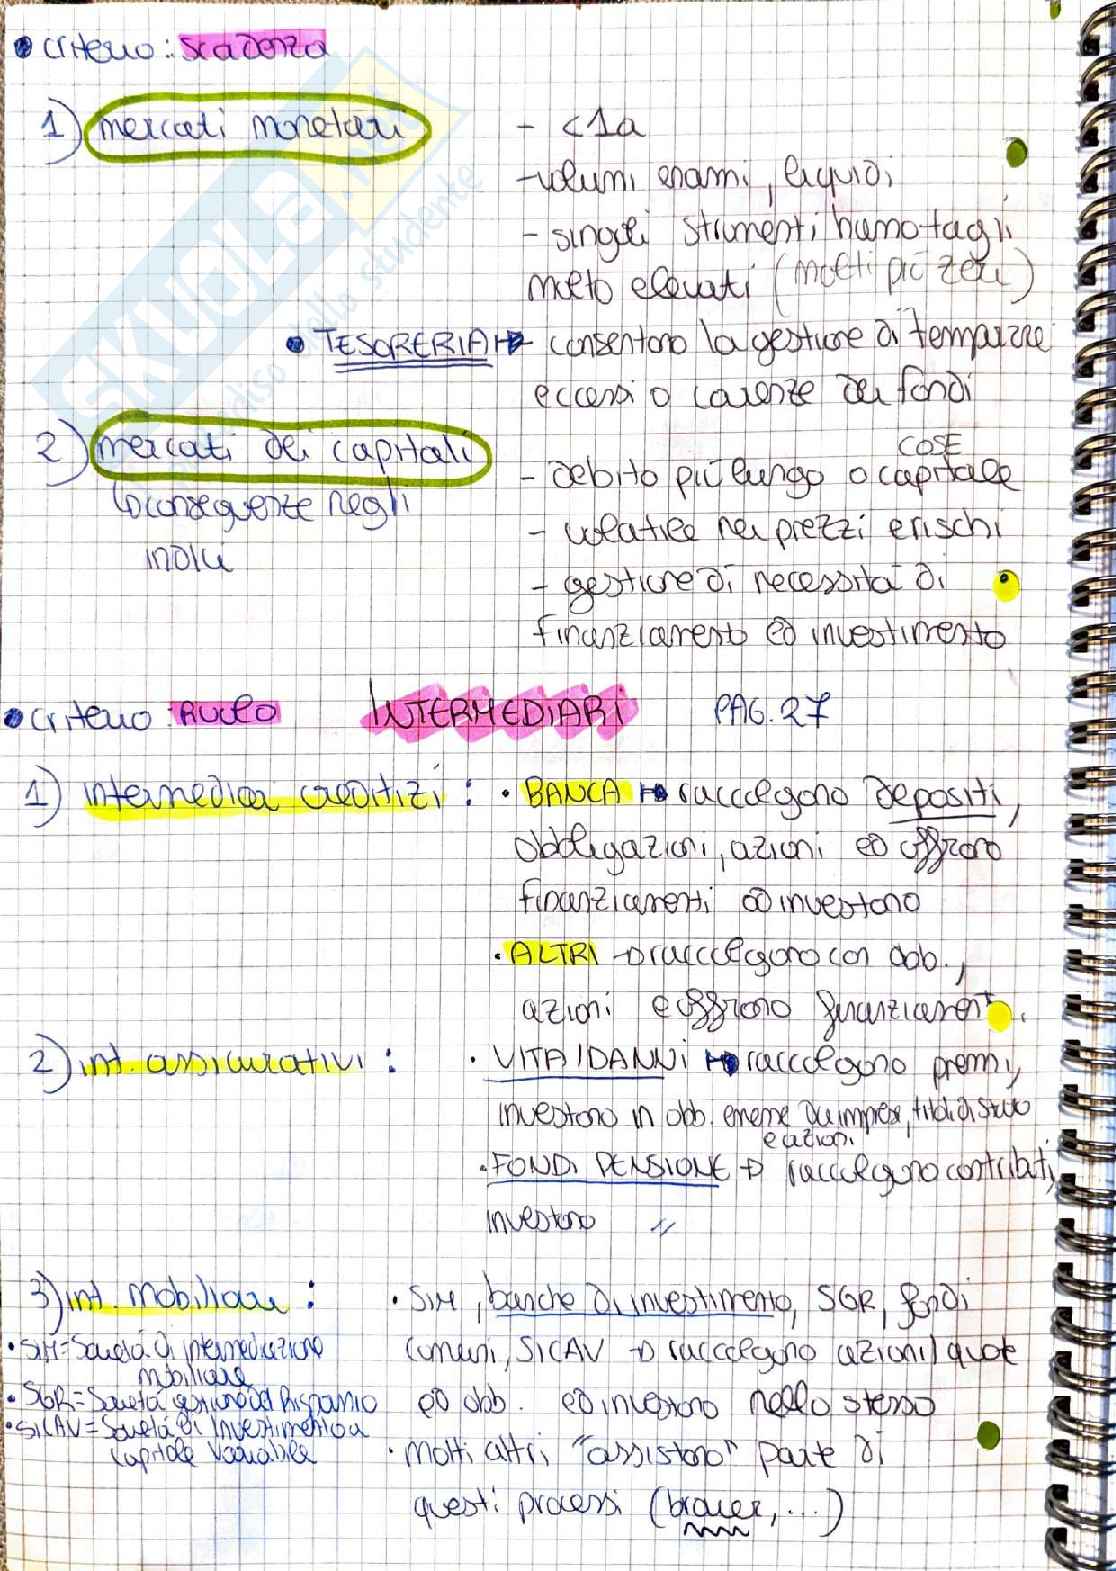 • criterio: scadenza
1) mercati monetari
- <1a
- volumi enormi, liquidi
- singoli strumenti hanno tagli
molto elevati (molti più zeri)
• TESORERIA → consentono la gestione di temporanei
eccessi o carenze dei fondi
2) mercati dei capitali
↳ conseguenze negli
indici
COSE
- debito più lungo o capitale
- volatile nei prezzi e rischi
- gestione di necessità di
finanziamento ed investimento
• criterio: RUOLO INTERMEDIARI PAG. 27
1) intermediari creditizi : • BANCA → raccolgono depositi,
obbligazioni, azioni ed offrono
finanziamenti ed investono
• ALTRI → raccolgono con obb.,
azioni e offrono finanziamenti.
2) int. assicurativi : • VITA/DANNI → raccolgono premi,
investono in obb. emesse da imprese, titoli di stato
e azioni.
• FONDI PENSIONE → raccolgono contributi,
investono "
3) int. mobiliari : • SIM, banche di investimento, SGR, fondi
comuni, SICAV → raccolgono azioni/quote
ed obb. ed investono nello stesso
• SIM = Società di intermediazione
mobiliare
• SGR = Società gestione del Risparmio
• SICAV = Società di Investimento a
capitale variabile
• molti altri "assistono" parte di
questi processi (broker, ...)
SKUOLA.NET
dello studente